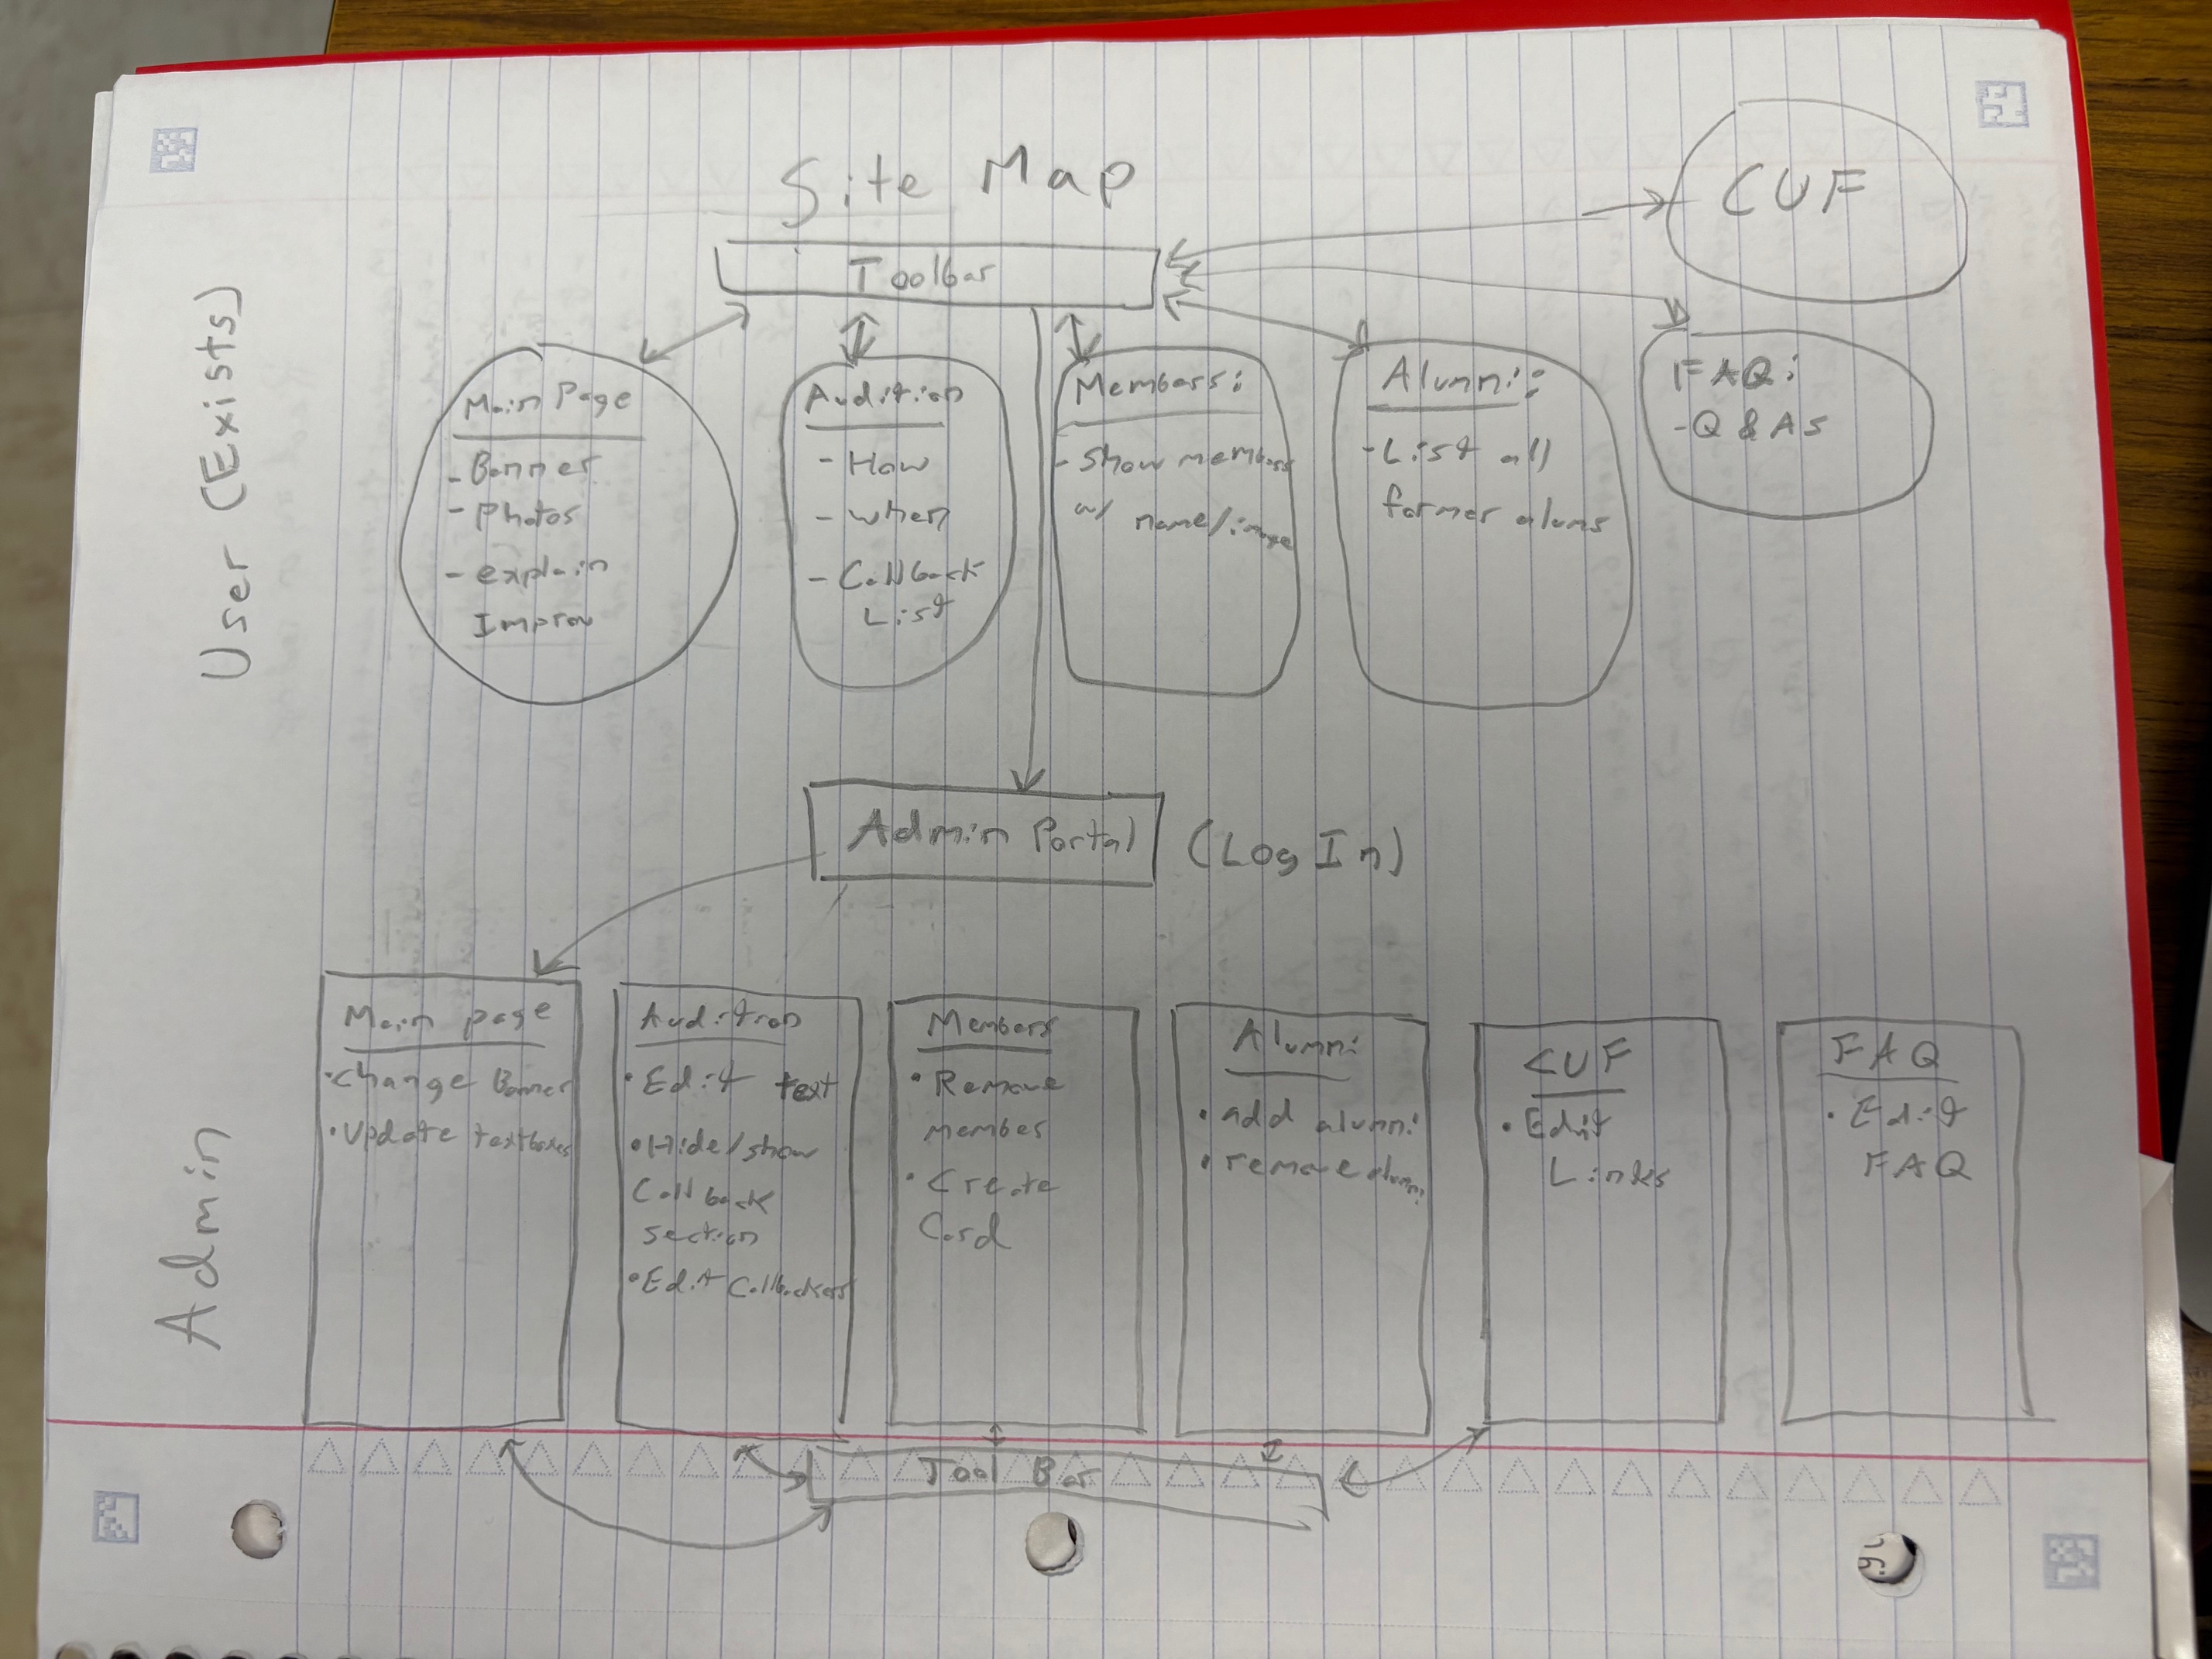 Site Map
User (Exists)
Toolbar
CUF
Main Page
- Banner
- Photos
- explain
Improv
Audition
- How
- When
- Callback
List
Members:
- Show members
w/ name/image
Alumni:
- List all
former alums
FAQ:
- Q & As
Admin Portal (Log In)
Admin
Main page
• Change Banner
• Update textboxes
Audition
• Edit text
• Hide/show
Callback
section
• Edit Callbacks
Members
• Remove
members
• Create
Card
Alumni
• Add alumni
• remove alumni
CUF
• Edit
Links
FAQ
• Edit
FAQ
Tool Bar